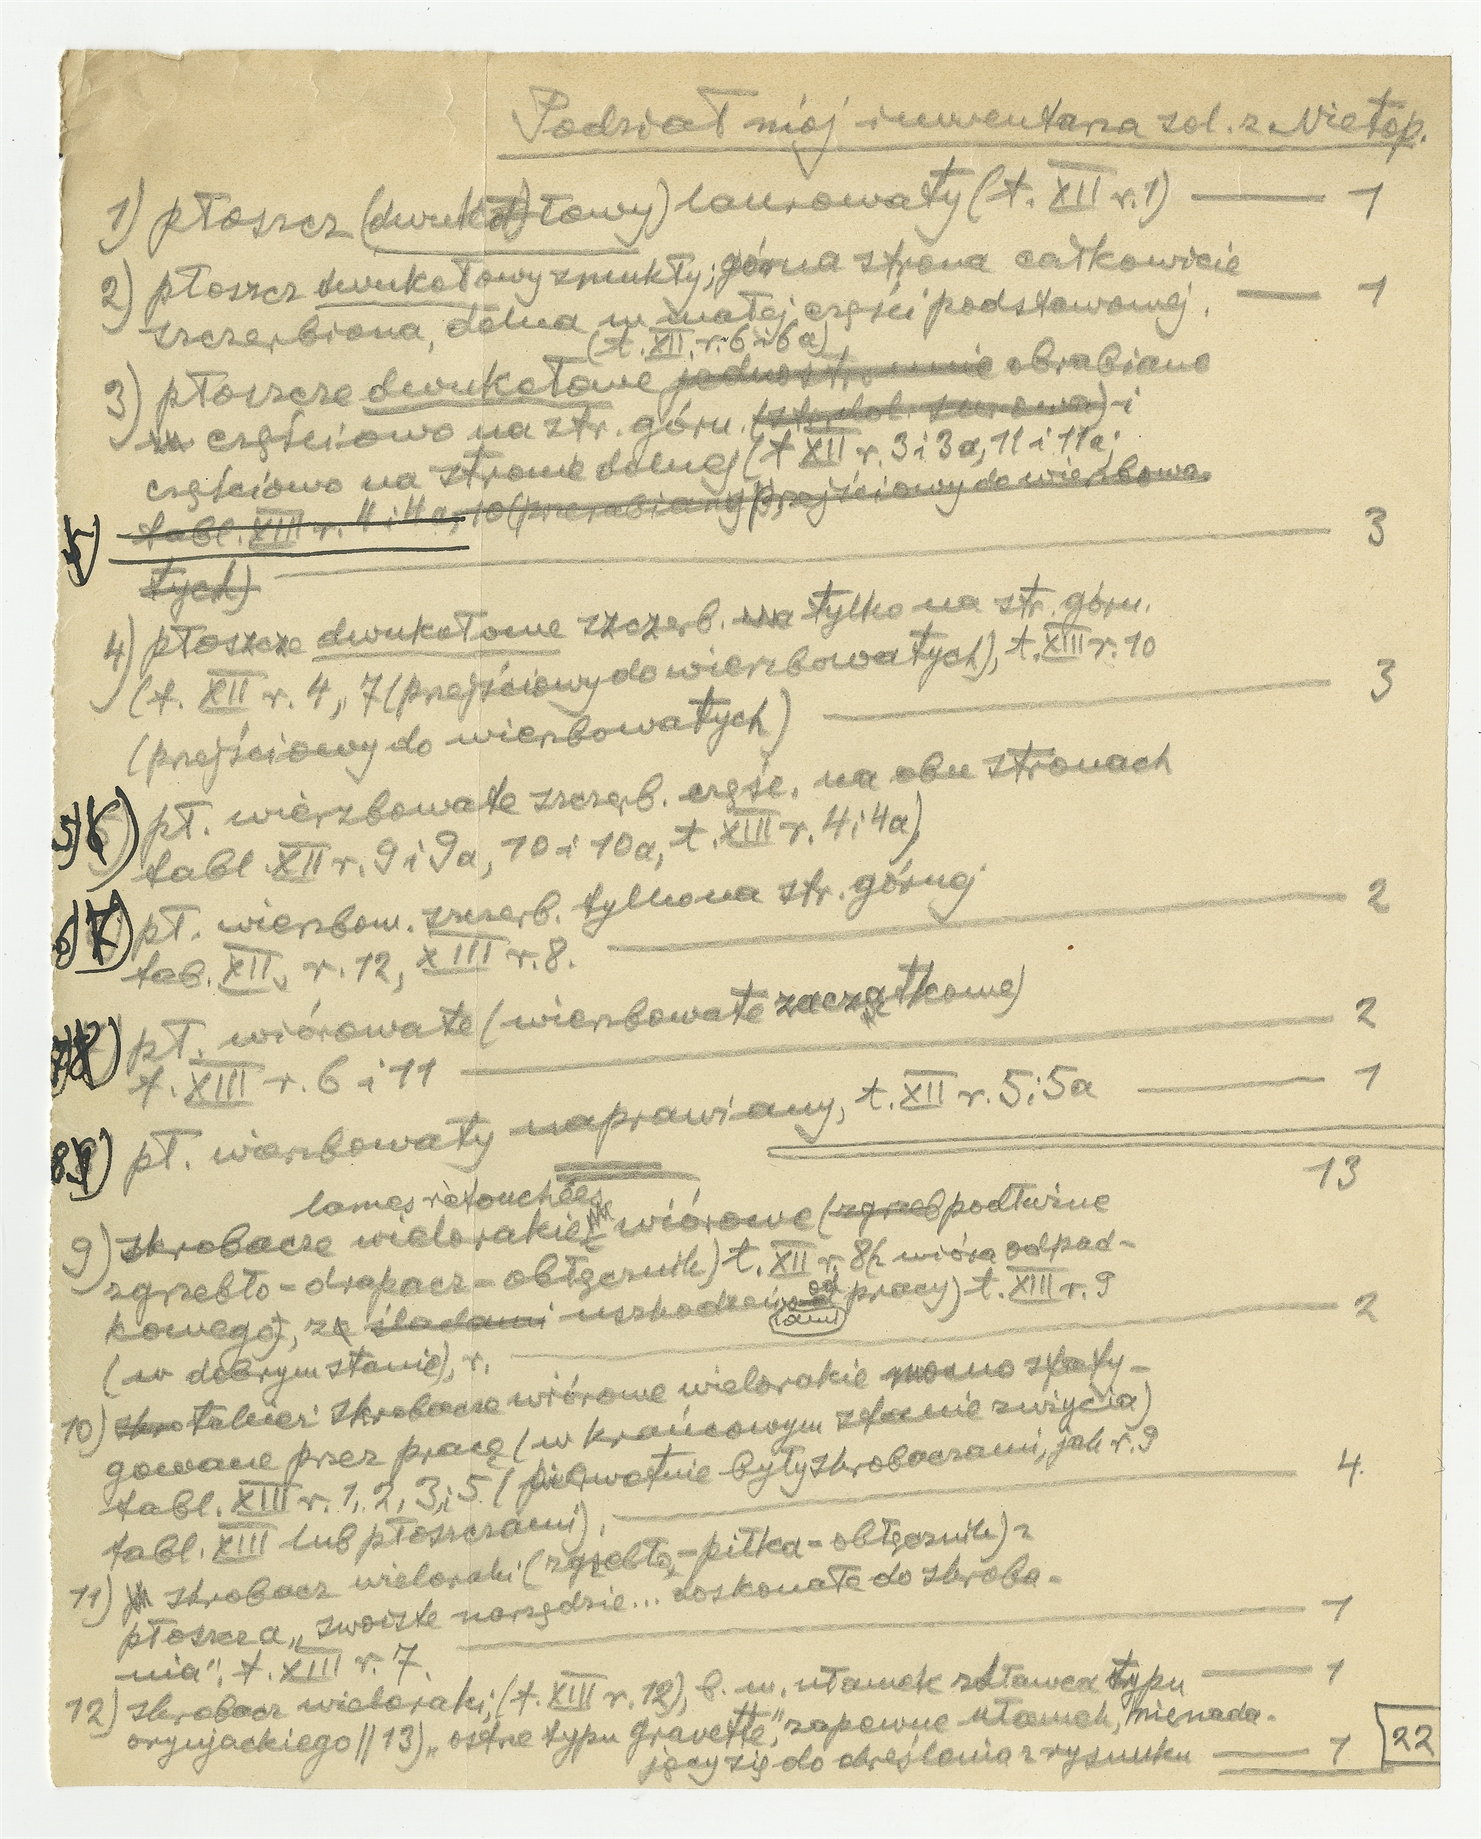 Podział mój inwentarza sol. z Nietop.
1) płoszcz (dwukątowy) laurowaty (t. XII r. 1) — 1
2) płoszcz dwukątowy smukły, górna strona całkowicie
szczerbiona, dolna w małej części podstawowej. — 1
(t. XII, r. 6 i 6a)
3) płoszcze dwukątowe jednostronnie obrabiane
częściowo na str. górn. (str. dol. surowa) i
częściowo na stronie dolnej (t XII r. 3 i 3a, 11 i 11a;
tabl. XIII r. 4 i 4a, 10 (przerabiany przejściowy do wierzbowa-
tych) — 3
4) płoszcze dwukątowe szczerb. na tylko na str. górn.
(t. XII r. 4, 7 (przejściowy do wierzbowatych), t. XIII r. 10
(przejściowy do wierzbowatych) — 3
5) pł. wierzbowate szczerb. częśc. na obu stronach
tabl. XII r. 9 i 9a, 10 i 10a, t. XIII r. 4 i 4a)
6) 7) pł. wierzbow. szczerb. tylko na str. górnej
tab. XII, r. 12, XIII r. 8. — 2
7) 8) pł. wiórowate (wierzbowate zaczątkowe)
t. XIII r. 6 i 11 — 2
8) 9) pł. wierzbowaty naprawiany, t. XII r. 5 i 5a — 1
13
lames retouchées
9) skrobacze wielorakie wiórowe (zgrzeb podłużne
zgrzebło-drapacz-obłęcznik) t. XII r. 8 (z wióra odpad-
kowego), ze śladami uszkodzeń od pracy) t. XIII r. 9
ami
(w dobrym stanie), r. — 2
10) skro tylnież skrobacze wiórowe wielorakie mocno sfaty-
gowane przez pracę (w krańcowym stanie zużycia)
tabl. XIII r. 1, 2, 3, i 5. (pierwotnie były skrobaczami, jak r. 9
tabl. XIII lub płoszczami). — 4
11) skrobacz wieloraki (zgrzebło-piłka-obłęcznik) z
płoszcza „swoiste narzędzie... doskonałe do skroba-
nia", t. XIII r. 7. — 1
12) skrobacz wieloraki, (t. XIII r. 12), b. w. ułamek złławca typu — 1
oryniackiego || 13) „ostrze typu gravette", zapewne ułamek, nienada-
jący się do określenia z rysunku — 1
22